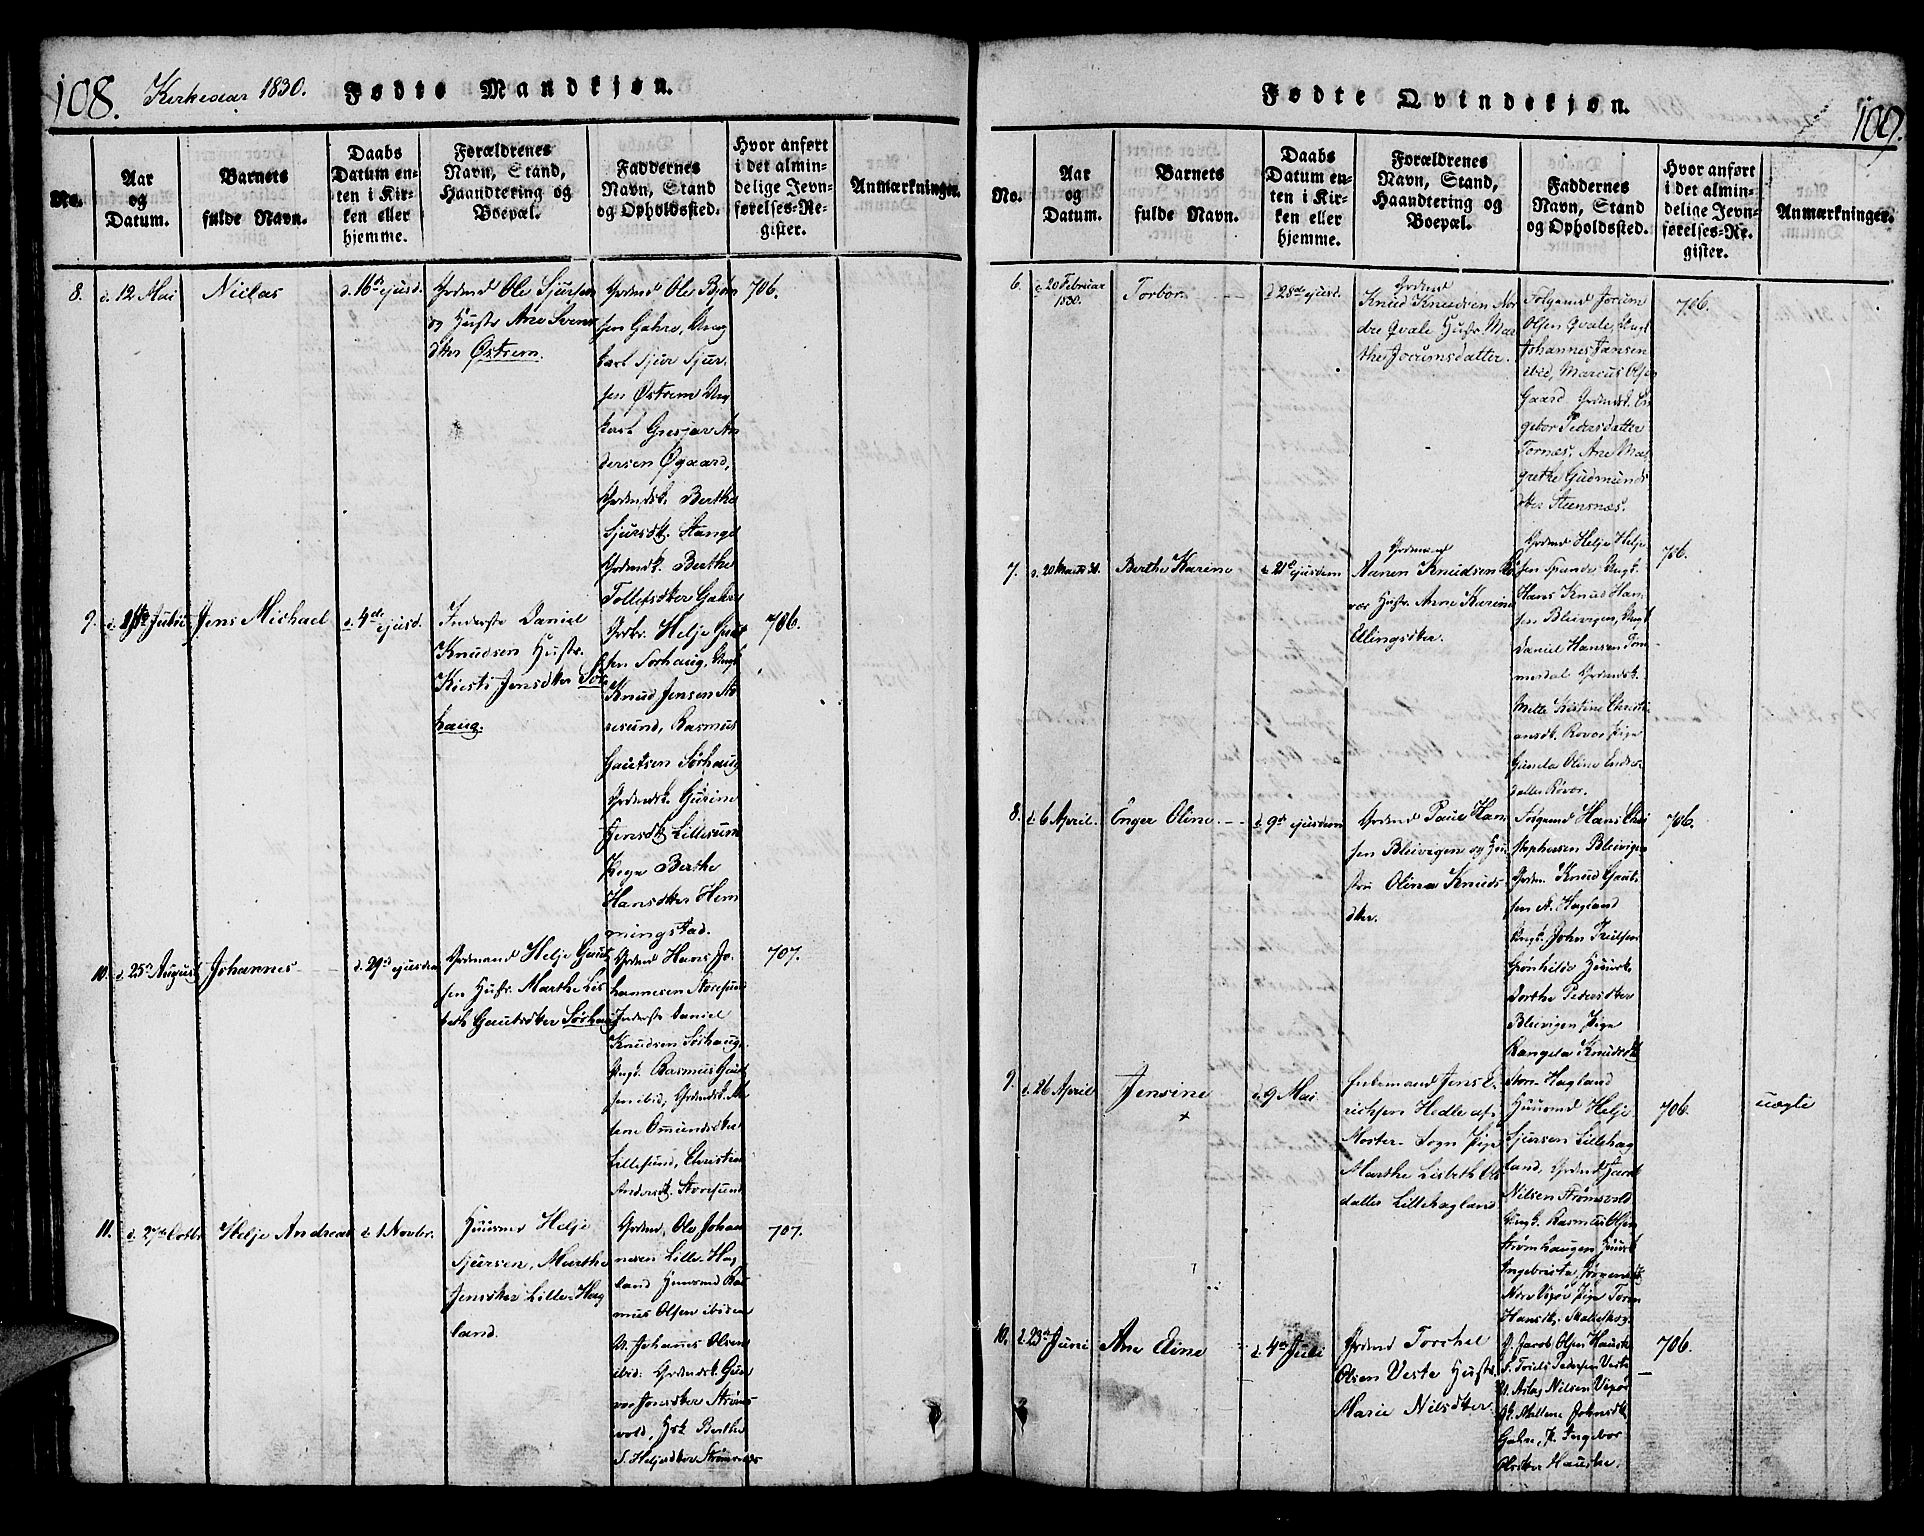 108. Kirkeaar 1830. Fødte Mandkjøn.
No.
Aar
og
Datum.
Barnets
fulde Navn.
Daabs
Datum en-
ten i Kir-
ken eller
hjemme.
Forældrenes
Navn, Stand,
Haandtering og
Boepæl.
Faddernes
Navn, Stand
og Opholdssted.
Hvor anført
i det almin-
delige Jevn-
førelses-Re-
gister.
Anmærkninger.
8.
d. 12 Mai
Niilas
d. 16de ejusd.
Grdmd Ole Sjursen
og Hustr Ane Svens
dtter Østrem.
Grdmd Ole Bjørn
sen Gahre, Ung
karl Sjur Sjur-
sen Østrem Ung
karl Gresjar An
dersen Øgaard,
Grdmdsk. Berthe
Sjursdtr. Stange
Grdmdsk. Berthe
Tollefsdtter Gahre
706.
9.
Julii
Jens Michael
d. 4de ejusd.
Inderste Daniel
Knudsen Hustr.
Kirsti Jensdtter Sør
haug.
Helje Gaut
sen Sørhaug, Ungk
Knud Jensen Sto
resund, Rasmus
Gautsen Sørhaug
Grdmdsk. Gurine
Jensdtr Lillesund
Pige Berthe
Hansdtter Hem
mingstad.
706.
10.
d. 25de August
Johannes
d. 29de ejusdem
Grdmand Helje Gaut
sen Hustr. Marthe Lis
beth Gautsdtter Sørhaug
Grdmd Hans Jo-
hannesen Storesund
Inderste Daniel
Knudsen Sørhaug.
Ungk. Rasmus Gaut
sen ibid, Grdmdsk. Ma
lene Omundsdtter
Lillesund, Christine
Andersdtr. Storesund
707.
11.
d. 27de Octbr
Helje Andreas
d. 1 Novbr.
Huusmd Helje
Sjursen, Marthe
Jensdtter Lille-Hag
land.
Grdmd, Ole Johan
nesen Lille-Hag
land Huusmd Ras
mus Olsen ibidem
U. Johannes Olsen
ibid. Grdmdsk Gun
vor Jonsdtter Strøms
vold, Hsk Berthe
S. Heljesdtter Strømsnæs
707.
Fødte Qvindekjøn. 109.
No.
Aar
og
Datum.
Barnets
fulde Navn.
Daabs
Datum en-
ten i Kir-
ken eller
hjemme.
Forældrenes
Navn, Stand,
Haandtering og
Boepæl.
Faddernes
Navn, Stand
og Opholdssted.
Hvor anført
i det almin-
delige Jevn-
førelses-Re-
gister.
Anmærkninger.
6.
d. 20 Februar
1830.
Torbor
d. 28de ejusd.
Grdmd
Knud Knudsen Nor
dre Qvale Hustr. Mar
the Jorumsdatter.
Folgemd Jorum
Olsen Qvale, Ungk
Johannes Jansen
ibid, Marcus Olsen
Gaard Grdmdsk. In
gebor Pedersdatter
Tornæs, Ane Mar
grethe Gudmunds
dtter Steensnæs.
706.
7.
d. 20 Marts 30.
Berthe Karine
d. 21de ejusdem
Grdmand
Aanen Knudsen Rø
vær Hustr. Anne Karine
Ellingsdtter.
Grdmd Helje Helje
sen Spanne, Ungk.
Hans Knud Han
sen Bleivigen, Ungk
Daniel Hansen Tom
mesdal Grdmdsk.
Mette Kistine Christi
ansdtr. Røvær Pige
Gunda Oline Enders
datter Røvær.
706.
8.
d. 6 April.
Enger Oline
d. 9de ejusdem
Grdmd Paul Han
sen Bleivigen og Hu
stru Olina Knuds-
dtter.
Folgemd Hans Chri
stophersen Bleivigen
Grdm. Knud Gaut-
sen St. Hagland
Ungk. John Trulsen
Grønhilde Huusk.
Dorthe Pedersdtter
Bleivigen, Pige
Rangela Knudsdtr
Store-Hagland
706.
9.
d. 26 April
Jensine
+
d. 9 Mai
Enkemand Jens E-
richsen Hedle af
Moster-Sogn Pige
Marthe Lisbeth Ols
datter Lillehagland
Huusmd Helje
Sjursen Lillehag
land, Grdmd Jacob
Nilsen Strømsvold
Ungk. Rasmus Olsen
Strøm Haugen Huusk
Ingebrista Jørgensdtr
Hansdtr. Skaleshog.
706.
uægte
10.
d. 23de Juni
Ane Eline
d. 4de Juli
Grdmd Torchel
Olsen Veste Hustr
Marie Nilsdtter.
G. Jacob Olsen Hauske
S. Troels Pedersen Veste
U. Aslag Nilsen Vigør
Gk. Mallene Johnsdtr
Gahre, P. Ingebor
Olsdtter Hauske.
706.